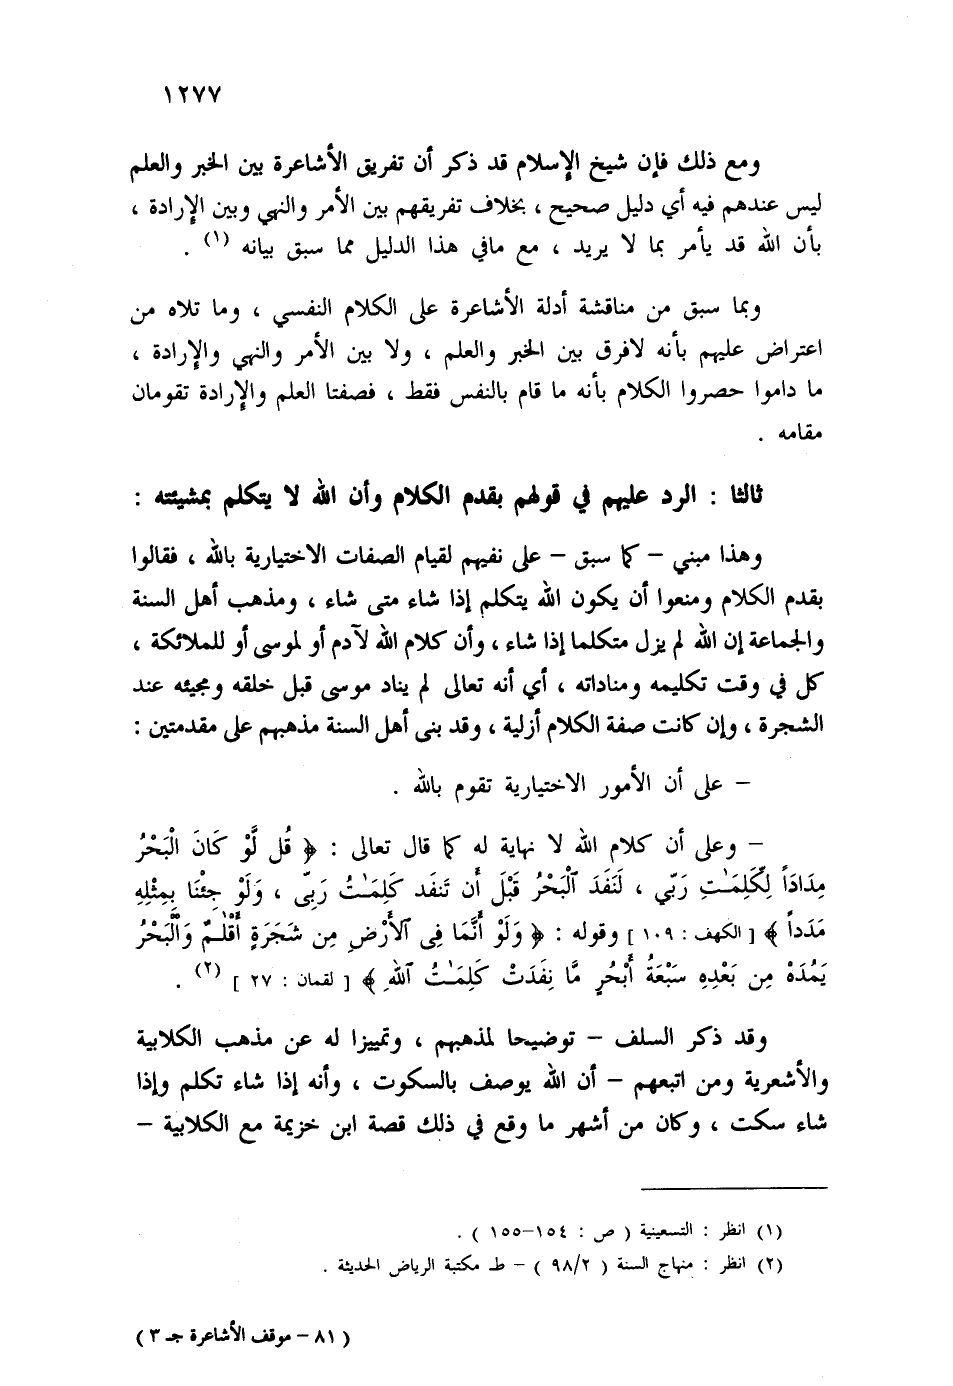 ١٢٧٧
ومع ذلك فإن شيخ الإسلام قد ذكر أن تفريق الأشاعرة بين الخبر والعلم
ليس عندهم فيه أي دليل صحيح ، بخلاف تفريقهم بين الأمر والنهي وبين الإرادة ،
بأن الله قد يأمر بما لا يريد ، مع مافي هذا الدليل مما سبق بيانه (١) .
وبما سبق من مناقشة أدلة الأشاعرة على الكلام النفسي ، وما تلاه من
اعتراض عليهم بأنه لافرق بين الخبر والعلم ، ولا بين الأمر والنهي والإرادة ،
ما داموا حصروا الكلام بأنه ما قام بالنفس فقط ، فصفتا العلم والإرادة تقومان
مقامه .
ثالثا : الرد عليهم في قولهم بقدم الكلام وأن الله لا يتكلم بمشيئته :
وهذا مبني – كما سبق – على نفيهم لقيام الصفات الاختيارية بالله ، فقالوا
بقدم الكلام ومنعوا أن يكون الله يتكلم إذا شاء متى شاء ، ومذهب أهل السنة
والجماعة إن الله لم يزل متكلما إذا شاء ، وأن كلام الله لآدم أو لموسى أو للملائكة ،
كل في وقت تكليمه ومناداته ، أي أنه تعالى لم يناد موسى قبل خلقه ومجيئه عند
الشجرة ، وإن كانت صفة الكلام أزلية ، وقد بنى أهل السنة مذهبهم على مقدمتين :
– على أن الأمور الاختيارية تقوم بالله .
– وعلى أن كلام الله لا نهاية له كما قال تعالى : ﴿ قُل لَّوْ كَانَ الْبَحْرُ
مِدَاداً لِّكَلِمَـٰتِ رَبِّي ، لَنَفَدَ ٱلْبَحْرُ قَبْلَ أَن تَنفَد كَلِمَـٰتُ رَبِّى ، وَلَوْ جِئْنَا بِمِثْلِهِ
مَدَداً ﴾ [ الكهف : ١٠٩ ] وقوله : ﴿ وَلَوْ أَنَّمَا فِى ٱلأَرْضِ مِن شَجَرَةٍ أَقْلَـٰمٌ وَٱلْبَحْرُ
يَمُدّهُ مِن بَعْدِهِ سَبْعَةُ أَبْحُرٍ مَّا نَفِدَتْ كَلِمَـٰتُ ٱللَّهِ ﴾ [ لقمان : ٢٧ ] (٢) .
وقد ذكر السلف – توضيحا لمذهبهم ، وتمييزا له عن مذهب الكلابية
والأشعرية ومن اتبعهم – أن الله يوصف بالسكوت ، وأنه إذا شاء تكلم وإذا
شاء سكت ، وكان من أشهر ما وقع في ذلك قصة ابن خزيمة مع الكلابية –
(١) انظر : التسعينية ( ص : ١٥٤–١٥٥ ) .
(٢) انظر : منهاج السنة ( ٩٨/٢ ) – ط مكتبة الرياض الحديثة .
( ٨١ – موقف الأشاعرة جـ ٣ )